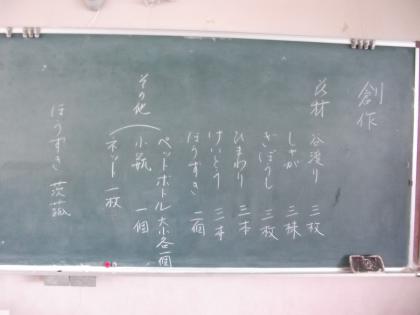 創作
花材 谷渡り 三枚
しゃが 三株
ぎぼうし 三枚
ひまわり 三本
けいとう 三本
ほうずき 二個
その他 ペットボトル大小各一個
小瓶 一個
ネット 一枚
ほうずき 茨菰